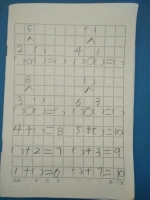 5 ( )
2 ( ) 4 1
( )○( )=( ) ( )○( )=( )
8 ( )
3 ( ) 6 3
( )○( )=( ) ( )○( )=( )
4+( )=8 5+( )=10
( )+2=7 ( )+3=9
1+( )=6 ( )+7=10